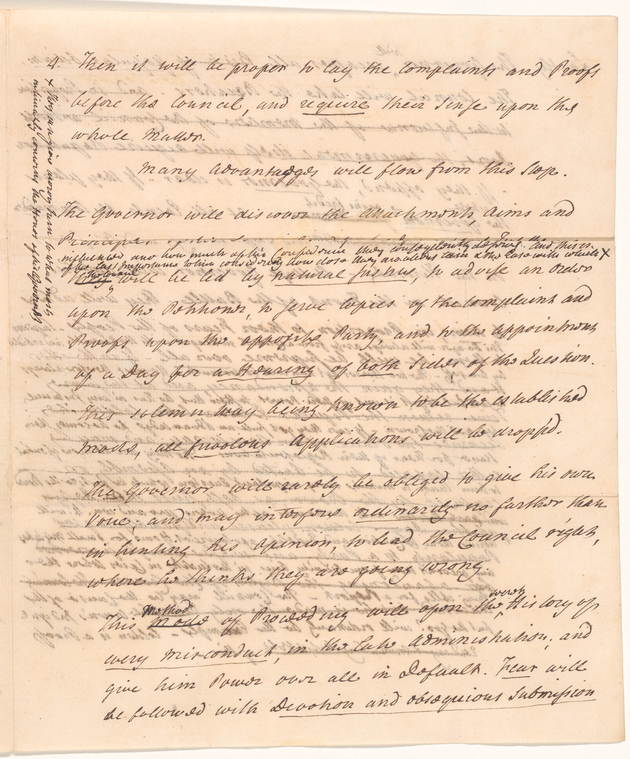 4. Then it will be proper to lay the complaints and Proofs
before the Council, and require their Sense upon the
whole Matter.
Many advantages will flow from this Step.
The Governor will discover the attachments, aims and
Principles
influence and how much of his Confidence they
of the last importance to him considering how close they are the Case with which X
They will be led by natural to advise an order
upon the Petitioner, to serve copies of the complaint and
Proofs upon the opposite Party, and to the appointment
of a Day for a Hearing of both Sides of the Question.
This solemn way being known to be the established
mode, all frivolous Applications will be dropped.
The Governor will rarely be obliged to give his own
Voice; and may interpose ordinarily no farther than
in hinting his opinion, to lead the Council right,
where he thinks they are going wrong.
This mode Method of Proceeding will open the secret History of
every misconduct, in the late administration; and
give him Power over all in Default. Fear will
be followed with Devotion and obsequious Submission
X They may give turn to what most
intimately concerns the Honor of the Governor